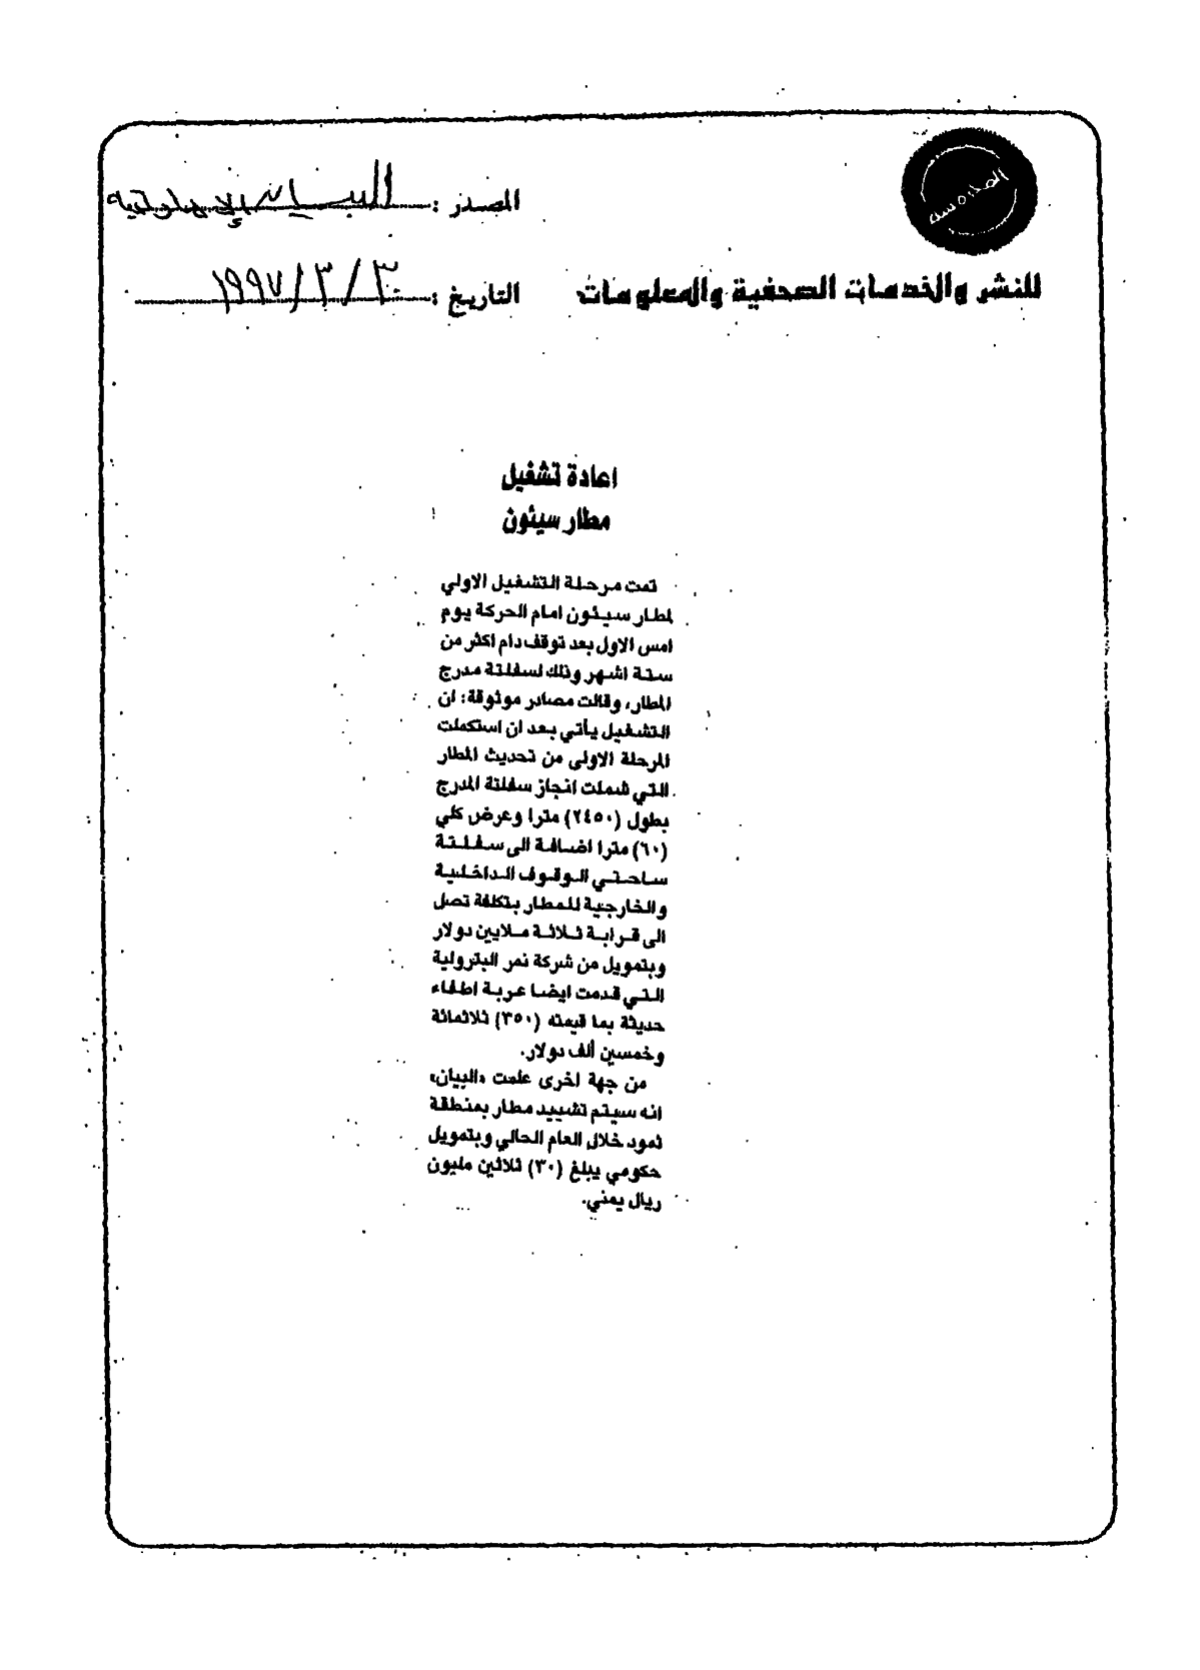 المصدر : البيان الإماراتية
التاريخ : ٣٠ / ٣ / ١٩٩٧
للنشر والخدمات الصحفية والمعلومات
اعادة تشغيل
مطار سيئون
تمت مرحلة التشغيل الاولي
لمطار سيئون امام الحركة يوم
امس الاول بعد توقف دام اكثر من
ستة اشهر وذلك لسفلتة مدرج
المطار، وقالت مصادر موثوقة: ان
التشغيل يأتي بعد ان استكملت
المرحلة الاولى من تحديث المطار
التي شملت انجاز سفلتة المدرج
بطول (٢٤٥٠) مترا وعرض كلي
(٦٠) مترا اضافة الى سفلتة
ساحتي الوقوف الداخلية
والخارجية للمطار بتكلفة تصل
الى قرابة ثلاثة ملايين دولار
وبتمويل من شركة نمر البترولية
التي قدمت ايضا عربة اطفاء
حديثة بما قيمته (٣٥٠) ثلاثمائة
وخمسين ألف دولار.
من جهة اخرى علمت «البيان»
انه سيتم تشييد مطار بمنطقة
ثمود خلال العام الحالي وبتمويل
حكومي يبلغ (٣٠) ثلاثين مليون
ريال يمني.